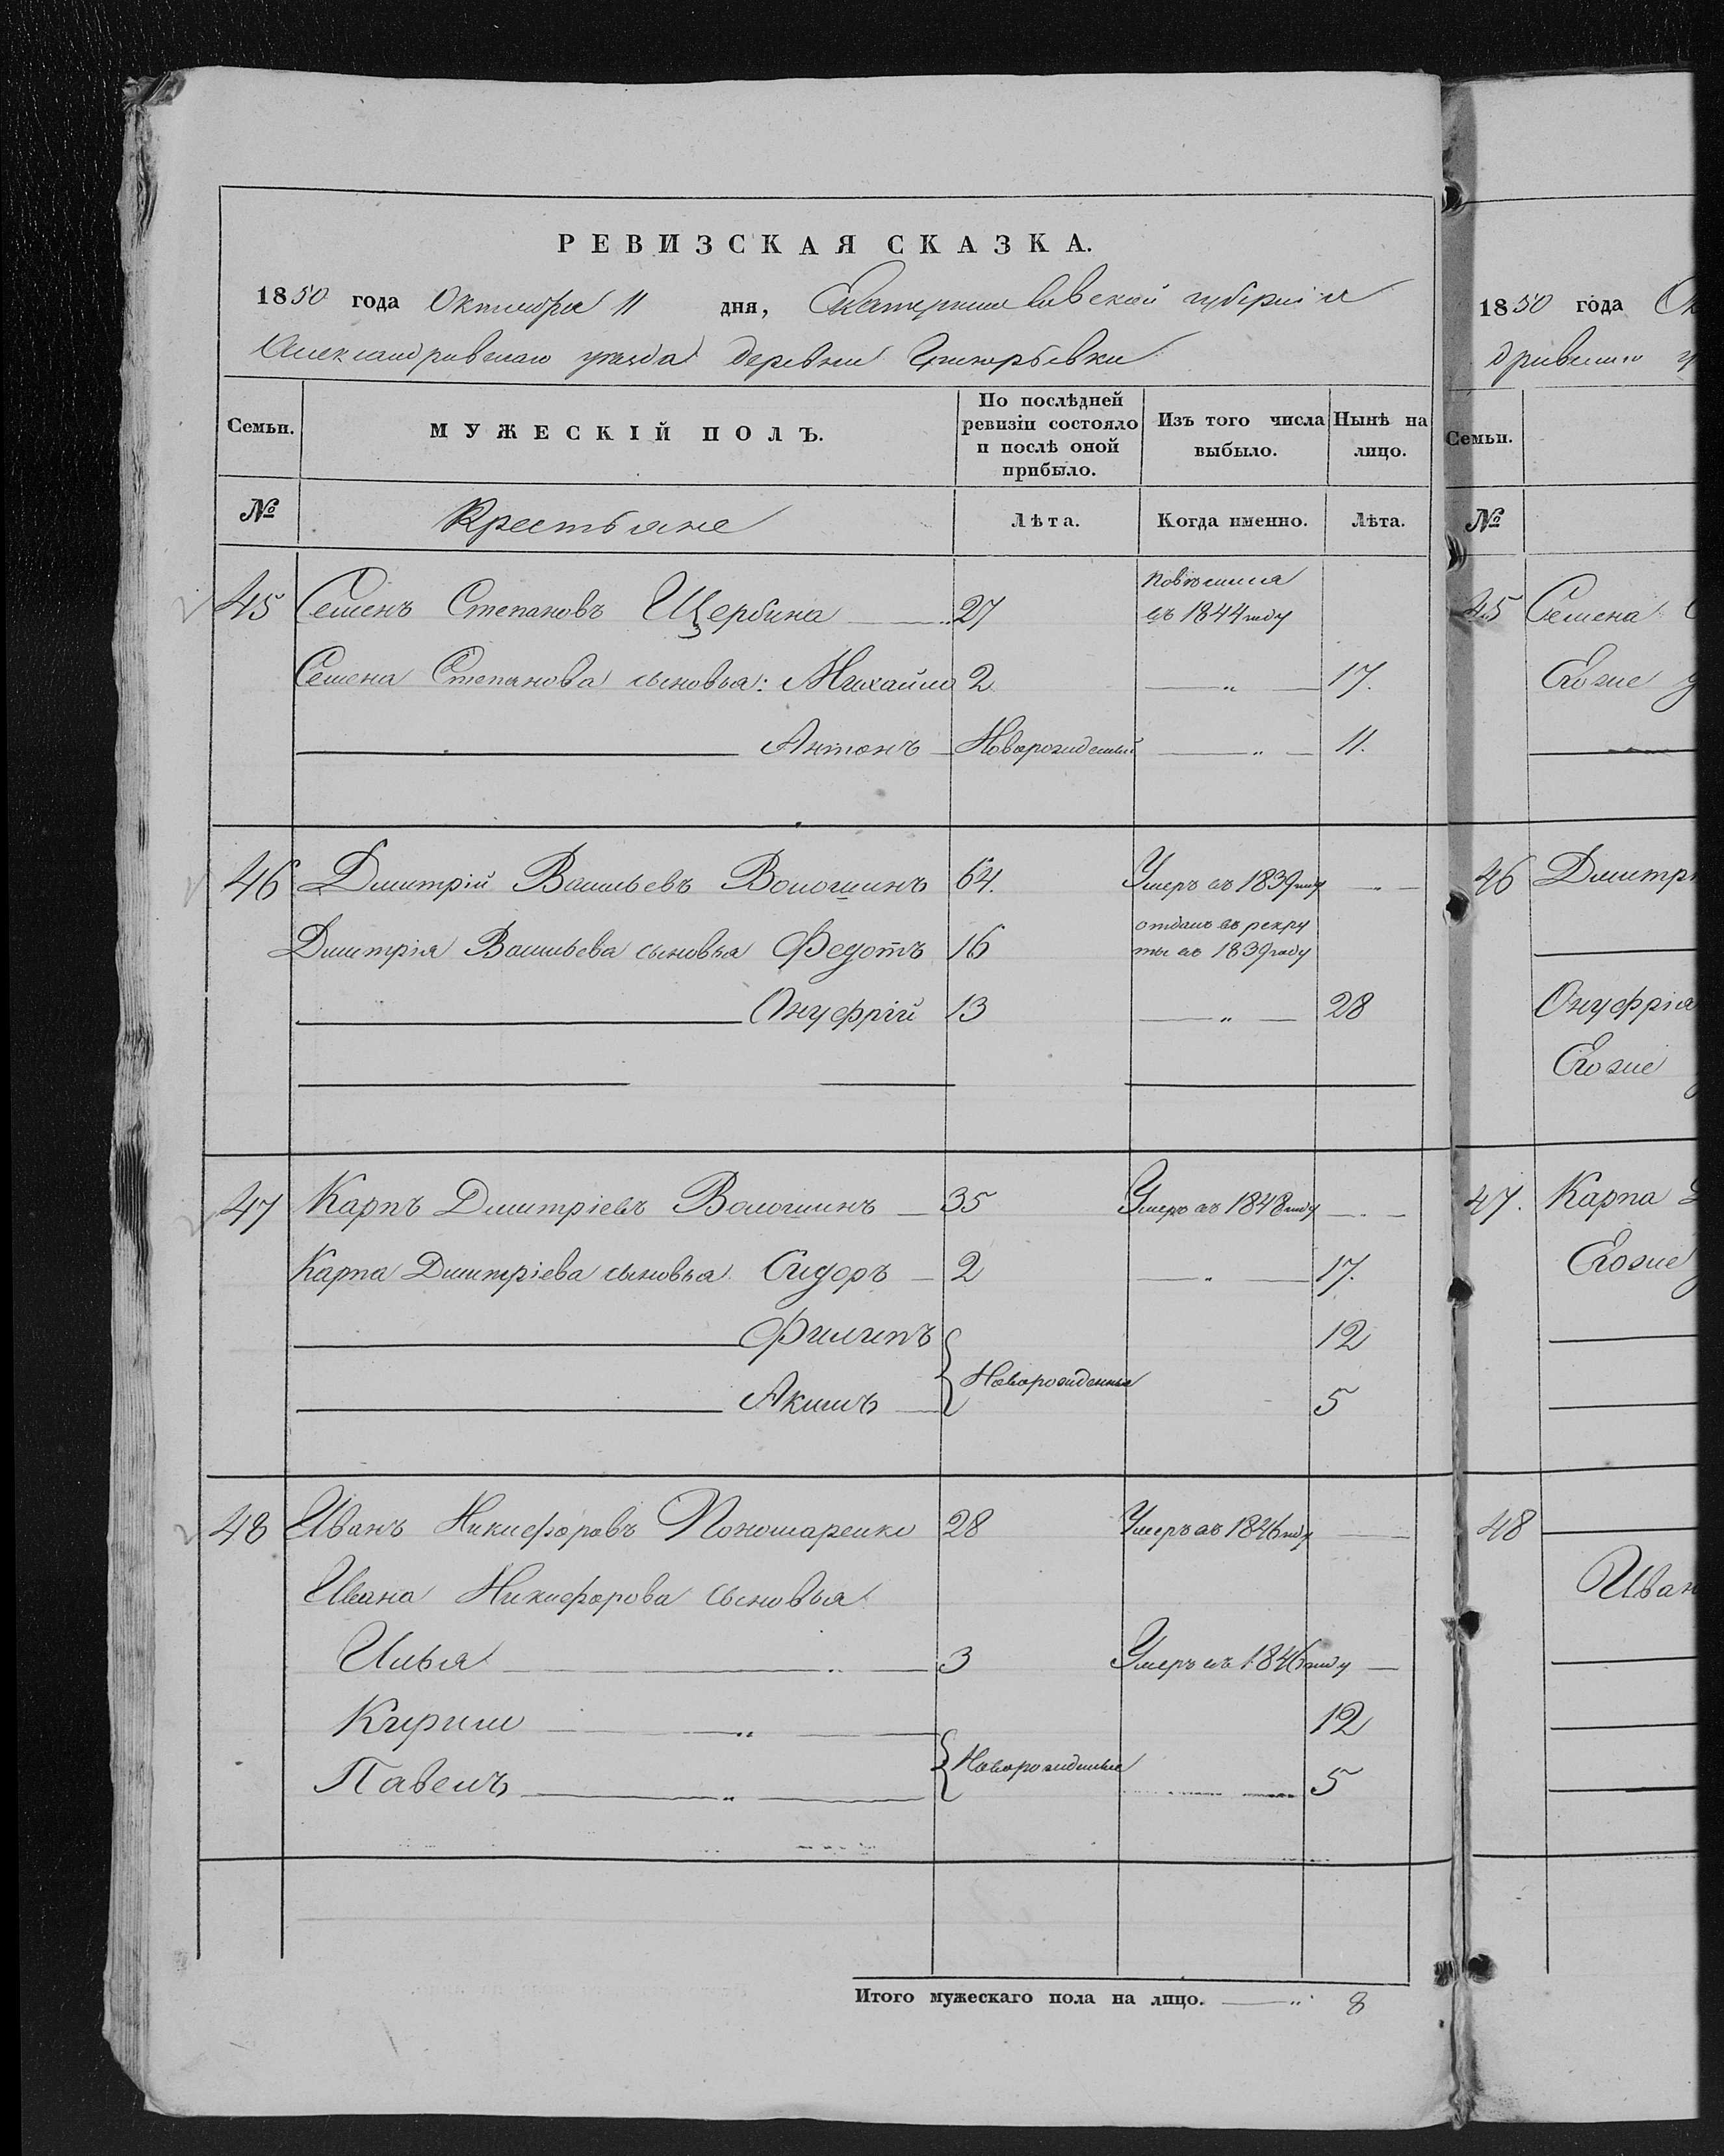 РЕВИЗСКАЯ СКАЗКА.
1850 года Октября 11 дня, Екатеринославской губерніи
Александровскаго уезда деревни
Семьи. МУЖЕСКІЙ ПОЛЪ. По послѣдней ревизіи состояло и послѣ оной прибыло. Изъ того числа выбыло. Нынѣ на лицо.
№ Крестьяне Лѣта. Когда именно. Лѣта.
45 Семенъ Степановъ Щербина 27 повѣсился въ 1844 году
Семена Степанова сыновья: Михайло 2 — „ — 17.
Антонъ Новорожденный — „ — 11.
46 Дмитрій Васильевъ Волошинъ 64. Умеръ въ 1839 году
Дмитрія Васильева сыновья Федотъ 16 отданъ въ рекруты въ 1839 году
Онуфрій 13 — „ — 28
47 Карпъ Дмитріевъ Волошинъ 35 Умеръ въ 1848 году
Карпа Дмитріева сыновья Сидоръ 2 — „ — 17.
Филипъ 12
Новорожденные
Акимъ 5
48 Иванъ Никифоровъ Пономаренко 28 Умеръ въ 1846 году
Ивана Никифорова сыновья
Илья „ 3 Умеръ въ 1846 году
Кирило „ 12
Новорожденные
Павелъ „ 5
Итого мужескаго пола на лицо. — „ 8
1850 года Ок
дровскаго у
Семьи.
№
45 Семена С
Его же д
46 Дмитрі
Онуфрія
Его же
47. Карпа Д
Его же
48
Иван